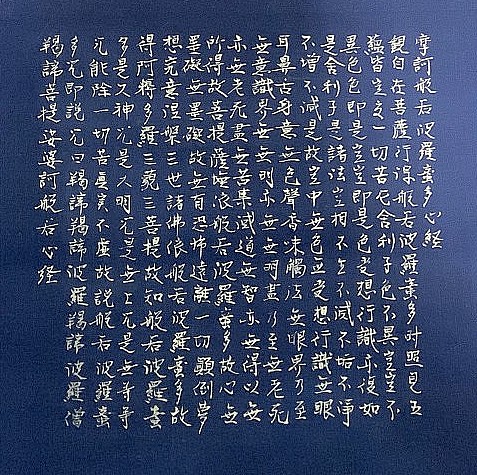 摩訶般若波羅蜜多心経
観自在菩薩行深般若波羅蜜多時照見五
蘊皆空度一切苦厄舎利子色不異空空不
異色色即是空空即是色受想行識亦復如
是舎利子是諸法空相不生不滅不垢不浄
不増不減是故空中無色無受想行識無眼
耳鼻舌身意無色聲香味觸法無眼界乃至
無意識界無無明亦無無明盡乃至無老死
亦無老死盡無苦集滅道無智亦無得以無
所得故菩提薩埵依般若波羅蜜多故心無
罣礙無罣礙故無有恐怖遠離一切顛倒夢
想究竟涅槃三世諸佛依般若波羅蜜多故
得阿耨多羅三藐三菩提故知般若波羅蜜
多是大神咒是大明咒是無上咒是無等等
咒能除一切苦真実不虚故説般若波羅蜜
多咒即説咒曰羯諦羯諦波羅羯諦波羅僧
羯諦菩提娑婆訶般若心経